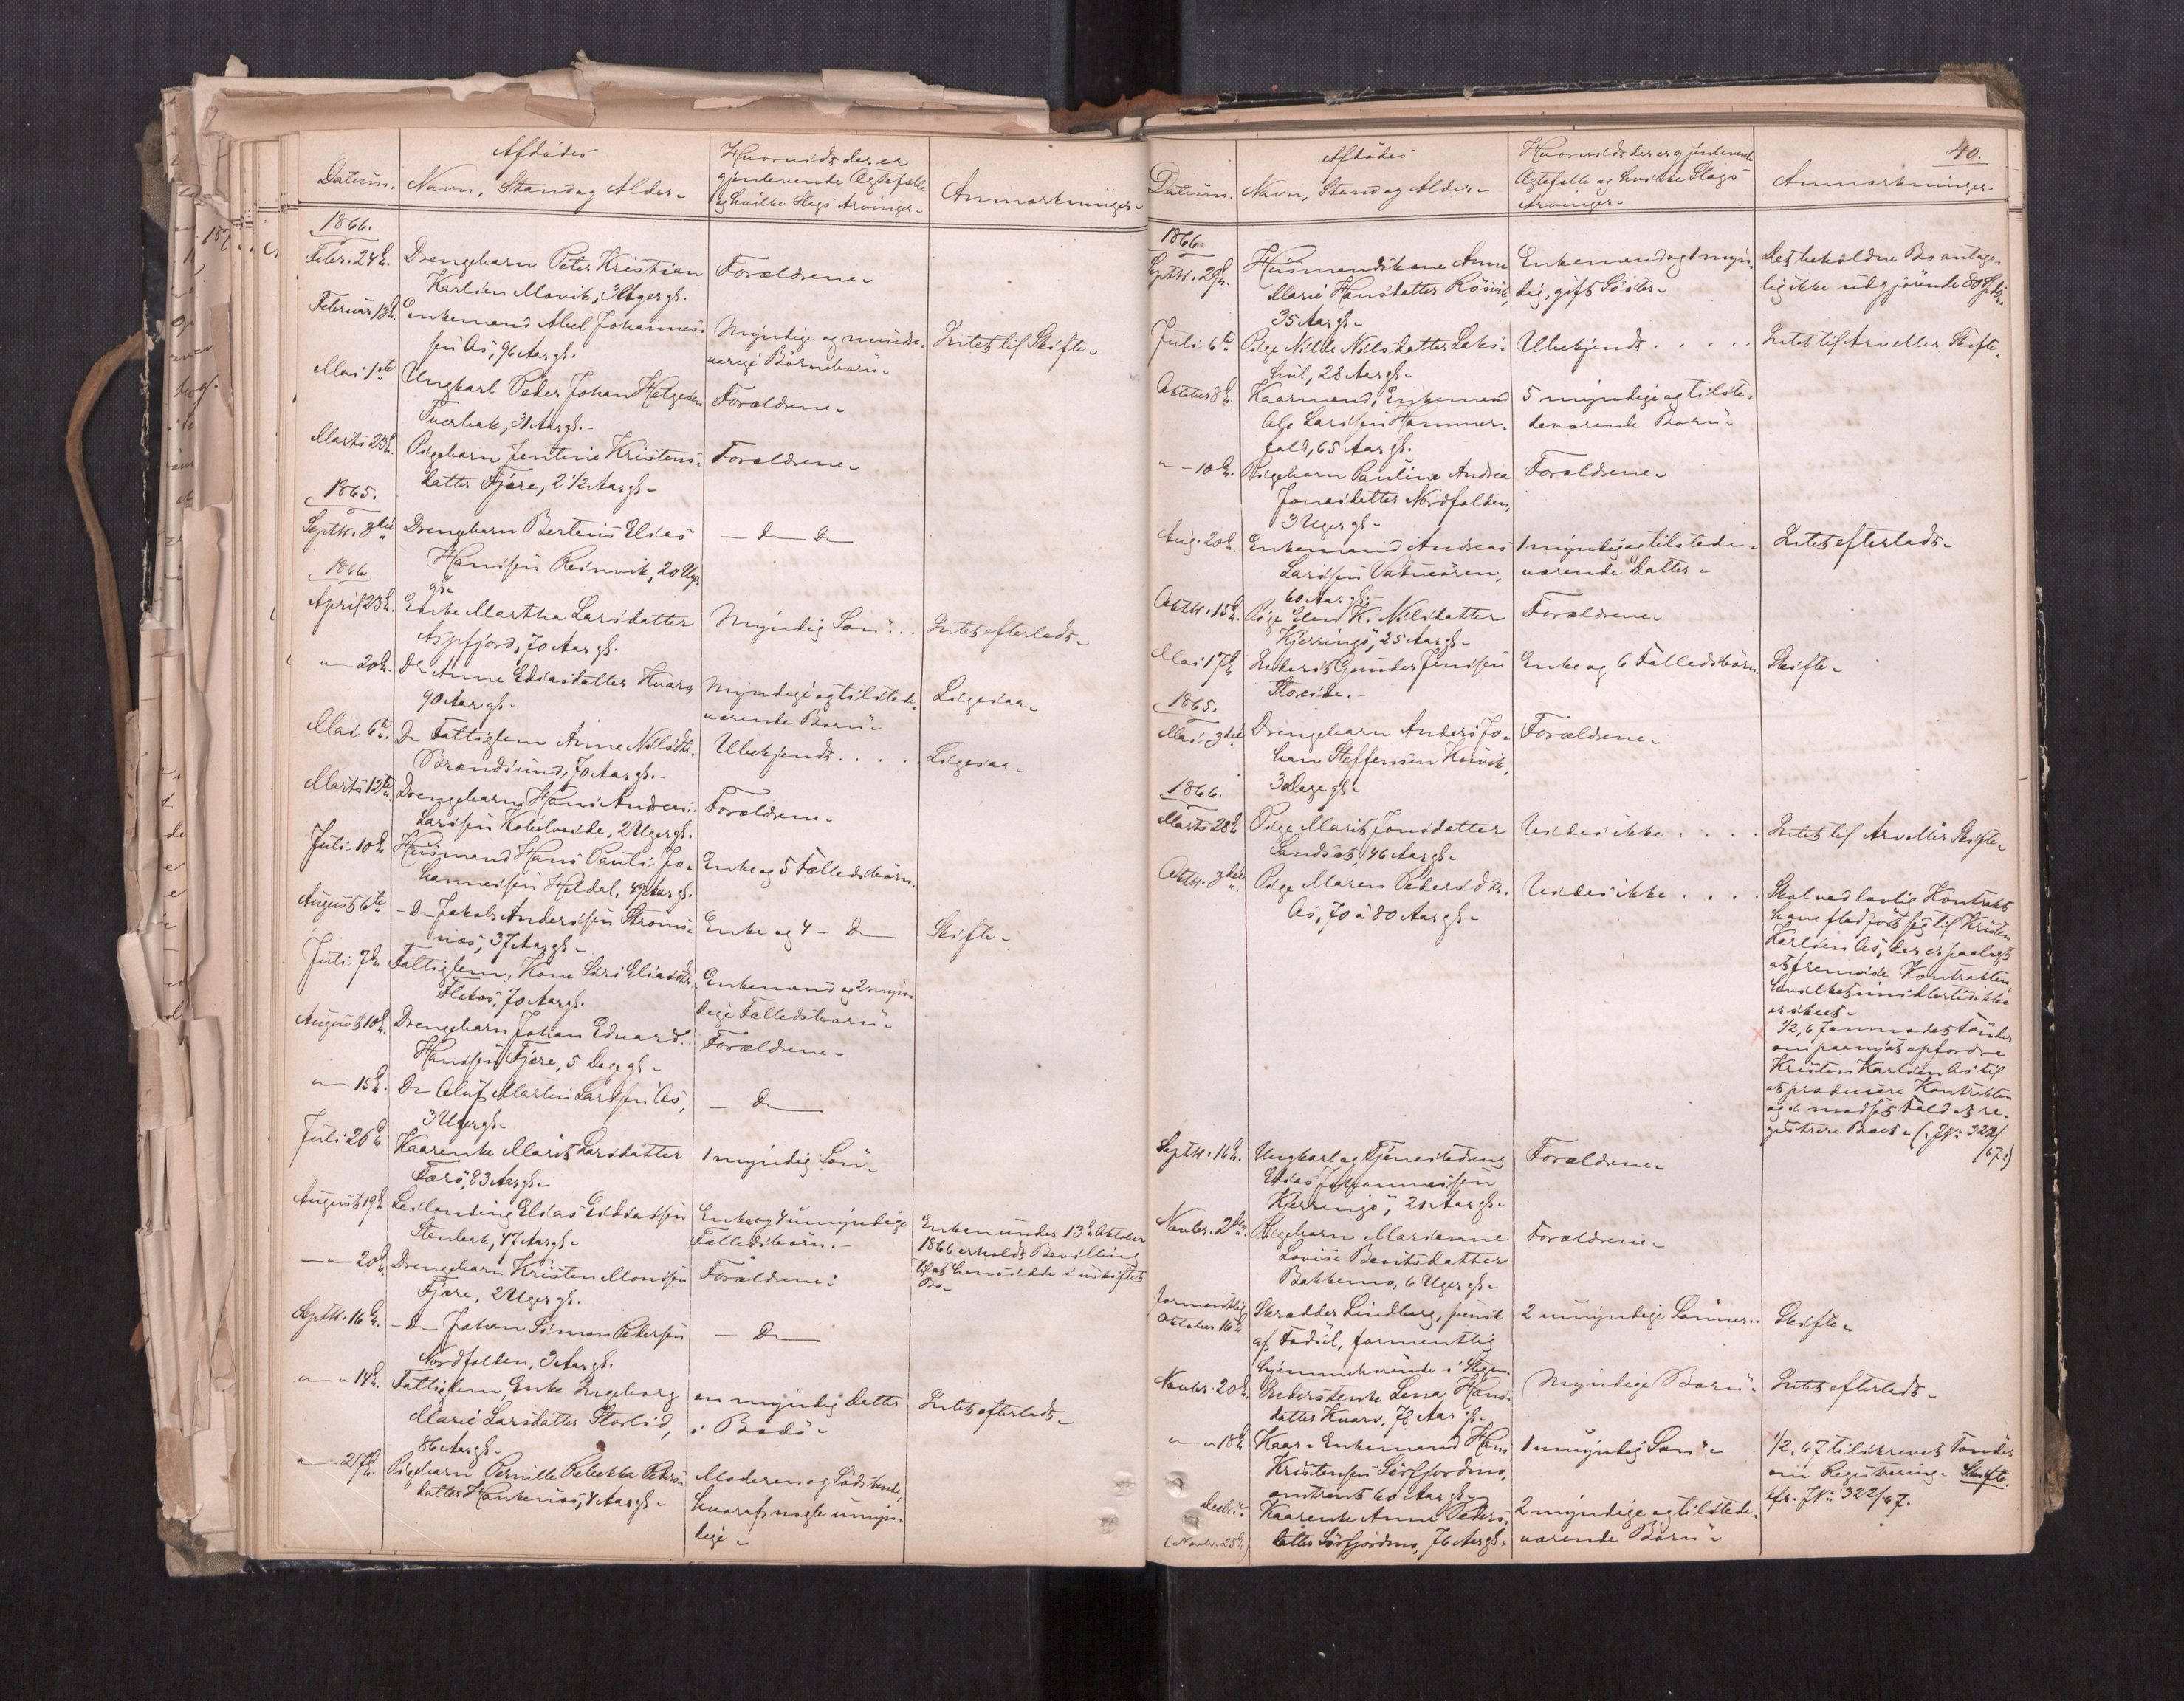 Datum.
Afdödes
Navn, Stand og Alder.
Hvorvidt der er
gjenlevende Ægtefælle
og hvilke Slags Arvinger.
Anmærkninger.
1866.
Febr. 24de.
Drengebarn Peter Kristian
Karlsen Movik, 3 Uger gl.
Forældrene.
Februar 13de.
Enkemand Abel Johannes-
sen Ås, 96 Aar gl.
Myndige og mindre-
aarige Börnebörn.
Intet til Skifte.
Mai 1ste
Ungkarl Peder Johan Helgesen
Tverbak, 31 Aar gl.
Forældrene.
Marts 23de.
Pigebarn Jentine Kristens-
datter Fjære, 2 1/2 Aar gl.
Forældrene.
1865.
Septbr. 3die
Drengebarn Bertinus Elias
Hansen Reinvik, 20 Uger
gl.
— Do Do
1866.
April 23de.
Enke Martha Larsdatter
Aspfjord, 70 Aar gl.
Myndig Sön...
Intet efterladt.
" 20de.
Do Anne Eliasdatter Kvarv
90 Aar gl.
Myndige og tilstede-
værende Börn.
Ligesaa.
Mai 6te
Do Fattiglem Anne Nilsdtr.
Brændsund, 70 Aar gl.
Ubekjendt.....
Ligesaa.
Marts 12te
Drengebarn Hans Andreas
Larssen Kobelveide, 2 Uger gl.
Forældrene.
Juli 10de
Husmand Hans Pauli Jo-
hannessen Heldal, 49 Aar gl.
Enke og 5 Fælledsbörn.
August 6te
— Do Jakob Anderssen Ströms-
næs, 37 Aar gl.
Enke og 4 — Do
Skifte.
Juli 7de
Fattiglem, Kone Siri Eliasdtr.
Flekos, 70 Aar gl.
Enkemand og 2 myn-
dige Fælledsbörn.
August 10de.
Drengebarn Johan Edvard
Hanssen Fjære, 5 Dage gl.
Forældrene.
" 15de.
Do Oluf Martin Larssen Ås,
3 Uger gl.
— Do
Juli 26de
Kaarenke Marit Larsdatter
Færö, 83 Aar gl.
1 myndig Sön.
August 19de
Leilænding Elias Eliassen
Stenbak, 47 Aar gl.
Enke og 4 umyndige
Fælledsbörn.
Enken under 13de Oktober
1866 erholdt Bevilling
til at hensidde i uskiftet
Bo.
" 20de.
Drengebarn Kristen Monssen
Fjære, 2 Uger gl.
Forældrene.
Septbr. 16de.
— Do Johan Simon Pedersen
Nordfolden, 3 Aar gl.
— Do
" " 14de.
Fattiglem, Enke Ingeborg
Marie Larsdatter Storlid,
86 Aar gl.
en myndig Datter
i Bodö.
Intet efterladt.
" 27de.
Pigebarn Pernille Rebekka Peders-
datter Hankenæs, 4 Aar gl.
Moderen og Södskende,
hvoraf nogle umyn-
dige.
40.
Datum.
Afdödes
Navn, Stand og Alder.
Hvorvidt der er gjenlevende
Ægtefælle og hvilke Slags
Arvinger.
Anmærkninger.
1866.
Septbr. 29de.
Husmandskone Anne
Marie Hansdatter Rösvik,
35 Aar gl.
Enkemand og 1 myn-
dig, gift Söster.
Det beholdne Bo antage-
lig ikke udgjörende 80 Spd.
Juli 6te
Pige Nille Nilsdatter Laks-
hul, 28 Aar gl.
Ubekjendt.....
Intet til Arv eller Skifte.
Oktober 8de.
Kaarmand, Enkemand
Ole Larssen Hammer-
fald, 65 Aar gl.
5 myndige og tilste-
deværende Börn.
" 10de.
Pigebarn Pauline Andrea
Jonasdatter Nordfolden,
3 Uger gl.
Forældrene.
Aug. 20de.
Enkemand Andreas
Larssen Vatneören,
60 Aar gl.
1 myndig og tilstede-
værende Datter.
Intet efterladt.
Oktbr. 15de.
Pige Elen K. Nilsdatter
Kjerringö, 25 Aar gl.
Forældrene.
Mai 17de
Inderst Gunder Jenssen
Storeide.
Enke og 6 Fælledsbörn.
Skifte.
1865.
Mai 3die
Drengebarn Anders Jo-
han Steffensen Korvik,
3 Dage gl.
Forældrene.
1866.
Marts 28de
Pige Marit Jonsdatter
Sandset, 46 Aar gl.
Vides ikke....
Intet til Arv eller Skifte.
Oktbr. 3die.
Pige Maren Pedersdtr.
Ås, 70 à 80 Aar gl.
Vides ikke....
Skal ved lovlig Kontrakt
have fledfört sig til Kristen
Karlsen Ås, der er paalagt
at fremvise Kontrakten,
hvilket imidlertid ikke
er skeet.
1/2, 67 anmodet Tönder
om paanyt at opfordre
Kristen Karlsen Ås til
at producere Kontrakten
og i modsat Fald at re-
gistrere Boet. (J.No: 322/
67.)
Septbr. 16de.
Ungkarl og Tjenestedreng
Elias Johannessen
Kjerringö, 21 Aar gl.
Forældrene.
Novbr. 2den
Pigebarn Marianne
Lovise Bentsdatter
Bakkemo, 6 Uger gl.
Forældrene.
formentlig
Oktober 16de
Skrædder Lindberg, svensk
af Födsel, formentlig
hjemmehörende i Stegen
2 umyndige Sönner..
Skifte.
Novbr. 20de.
Inderstenke Lena Hans-
datter Kvarv, 76 Aar gl.
Myndige Börn.
Intet efterladt.
" " 18de
Kaar-Enkemand Hans
Kristensen Sörfjordmo,
omtrent 60 Aar gl.
1 umyndig Sön.
1/2, 67 tilskrevet Tönder
om Registrering. Skifte.
cfr. J.No: 322/67.
Decbr. ?
(Novbr. 25de)
Kaarenke Anne Peders-
datter Sörfjordmo, 76 Aar gl.
2 myndige og tilstede-
værende Börn.